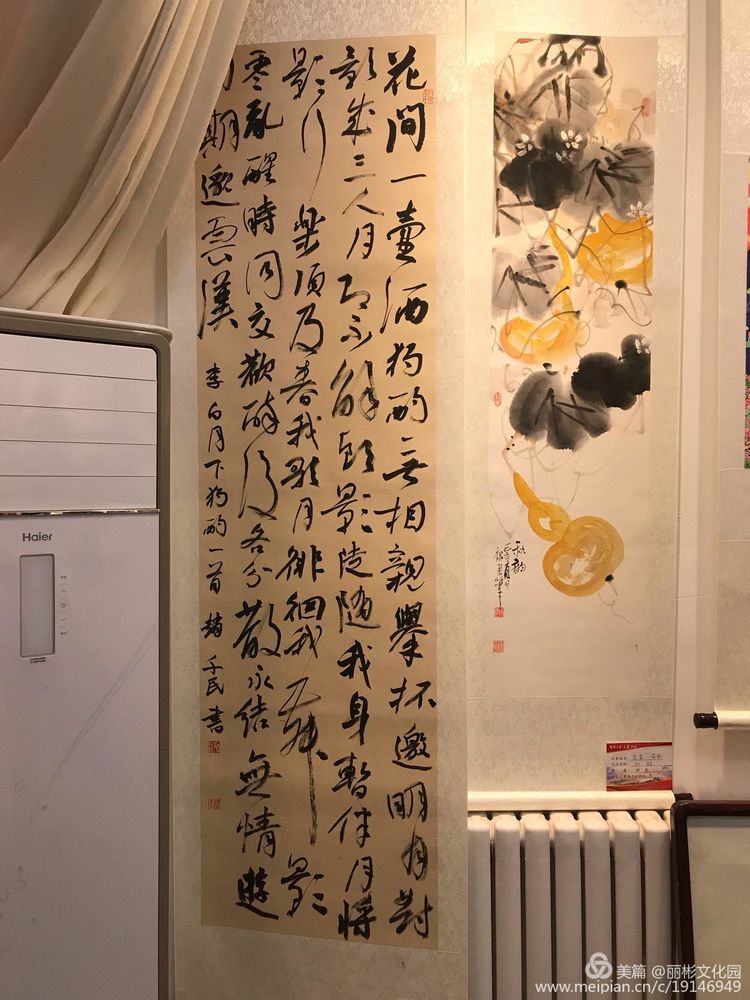 花間一壺酒独酌无相親舉杯邀明月對
影成三人月既不解飲影徒随我身暫伴月將
影行樂須及春我歌月徘徊我舞影
零亂醒時同交歡醉後各分散永結無情遊
相期邈雲漢
李白月下独酌一首 趙千民書
秋韵
Haier
美篇 @丽彬文化园
www.meipian.cn/c/19146949